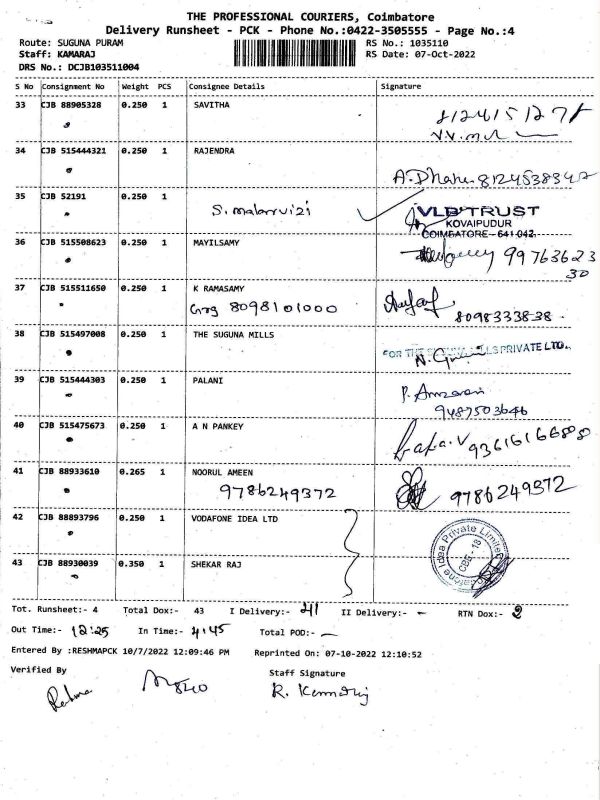 THE PROFESSIONAL COURIERS, Coimbatore
Delivery Runsheet - PCK - Phone No.:0422-3505555 - Page No.:4
Route: SUGUNA PURAM RS No.: 1035110
Staff: KAMARAJ RS Date: 07-Oct-2022
DRS No.: DCJB103511004
S No Consignment No Weight PCS Consignee Details Signature
33 CJB 88905328 0.250 1 SAVITHA
34 CJB 515444321 0.250 1 RAJENDRA
8124538342
35 CJB 52191 0.250 1
S. malarvizi VLB TRUST
KOVAIPUDUR
COIMBATORE - 641 042.
36 CJB 515508623 0.250 1 MAYILSAMY
99763623
30
37 CJB 515511650 0.250 1 K RAMASAMY
8098101000
8098333838
38 CJB 515497008 0.250 1 THE SUGUNA MILLS
FOR THE SUGUNA MILLS PRIVATE LTD.
39 CJB 515444303 0.250 1 PALANI
9487503646
40 CJB 515475673 0.250 1 A N PANKEY
41 CJB 88933610 0.265 1 NOORUL AMEEN
9786249372 9786249372
42 CJB 88893796 0.250 1 VODAFONE IDEA LTD
Vodafone Idea Private Limited
43 CJB 88930039 0.350 1 SHEKAR RAJ
Tot. Runsheet:- 4 Total Dox:- 43 I Delivery:- 41 II Delivery:- - RTN Dox:- 2
Out Time:- 12:25 In Time:- 4:45 Total POD:- -
Entered By :RESHMAPCK 10/7/2022 12:09:46 PM Reprinted On: 07-10-2022 12:10:52
Verified By Staff Signature